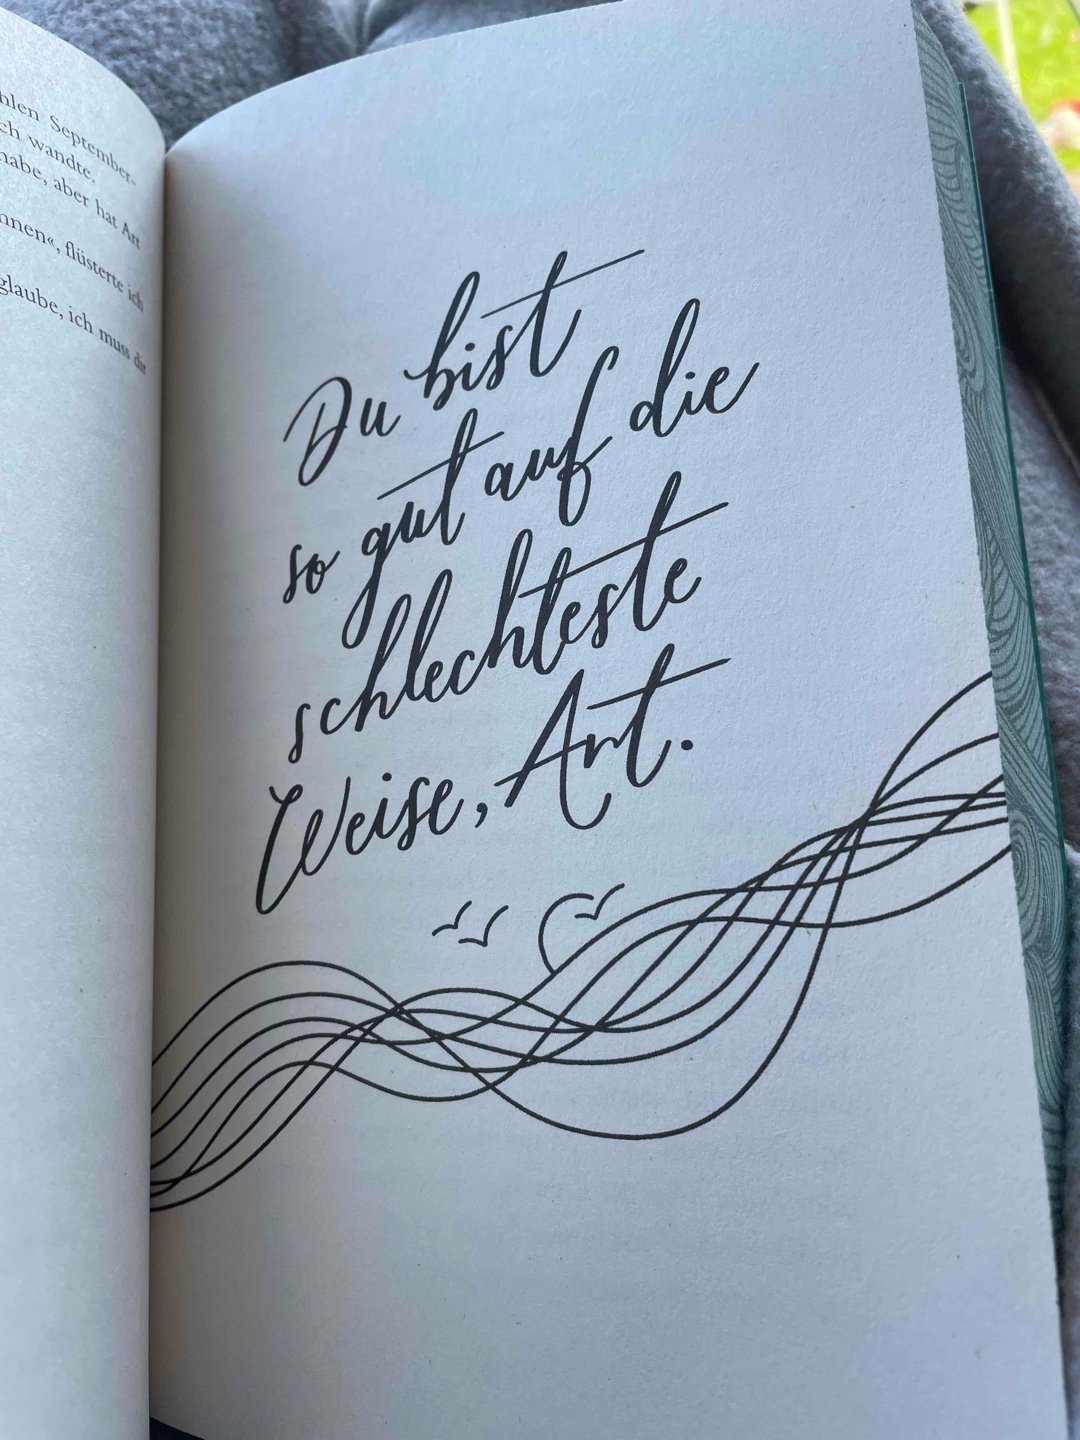 September-
ch wandte.
habe, aber hat Art
flüsterte ich
glaube, ich muss dir
Du bist
so gut auf die
schlechteste
Weise, Art.